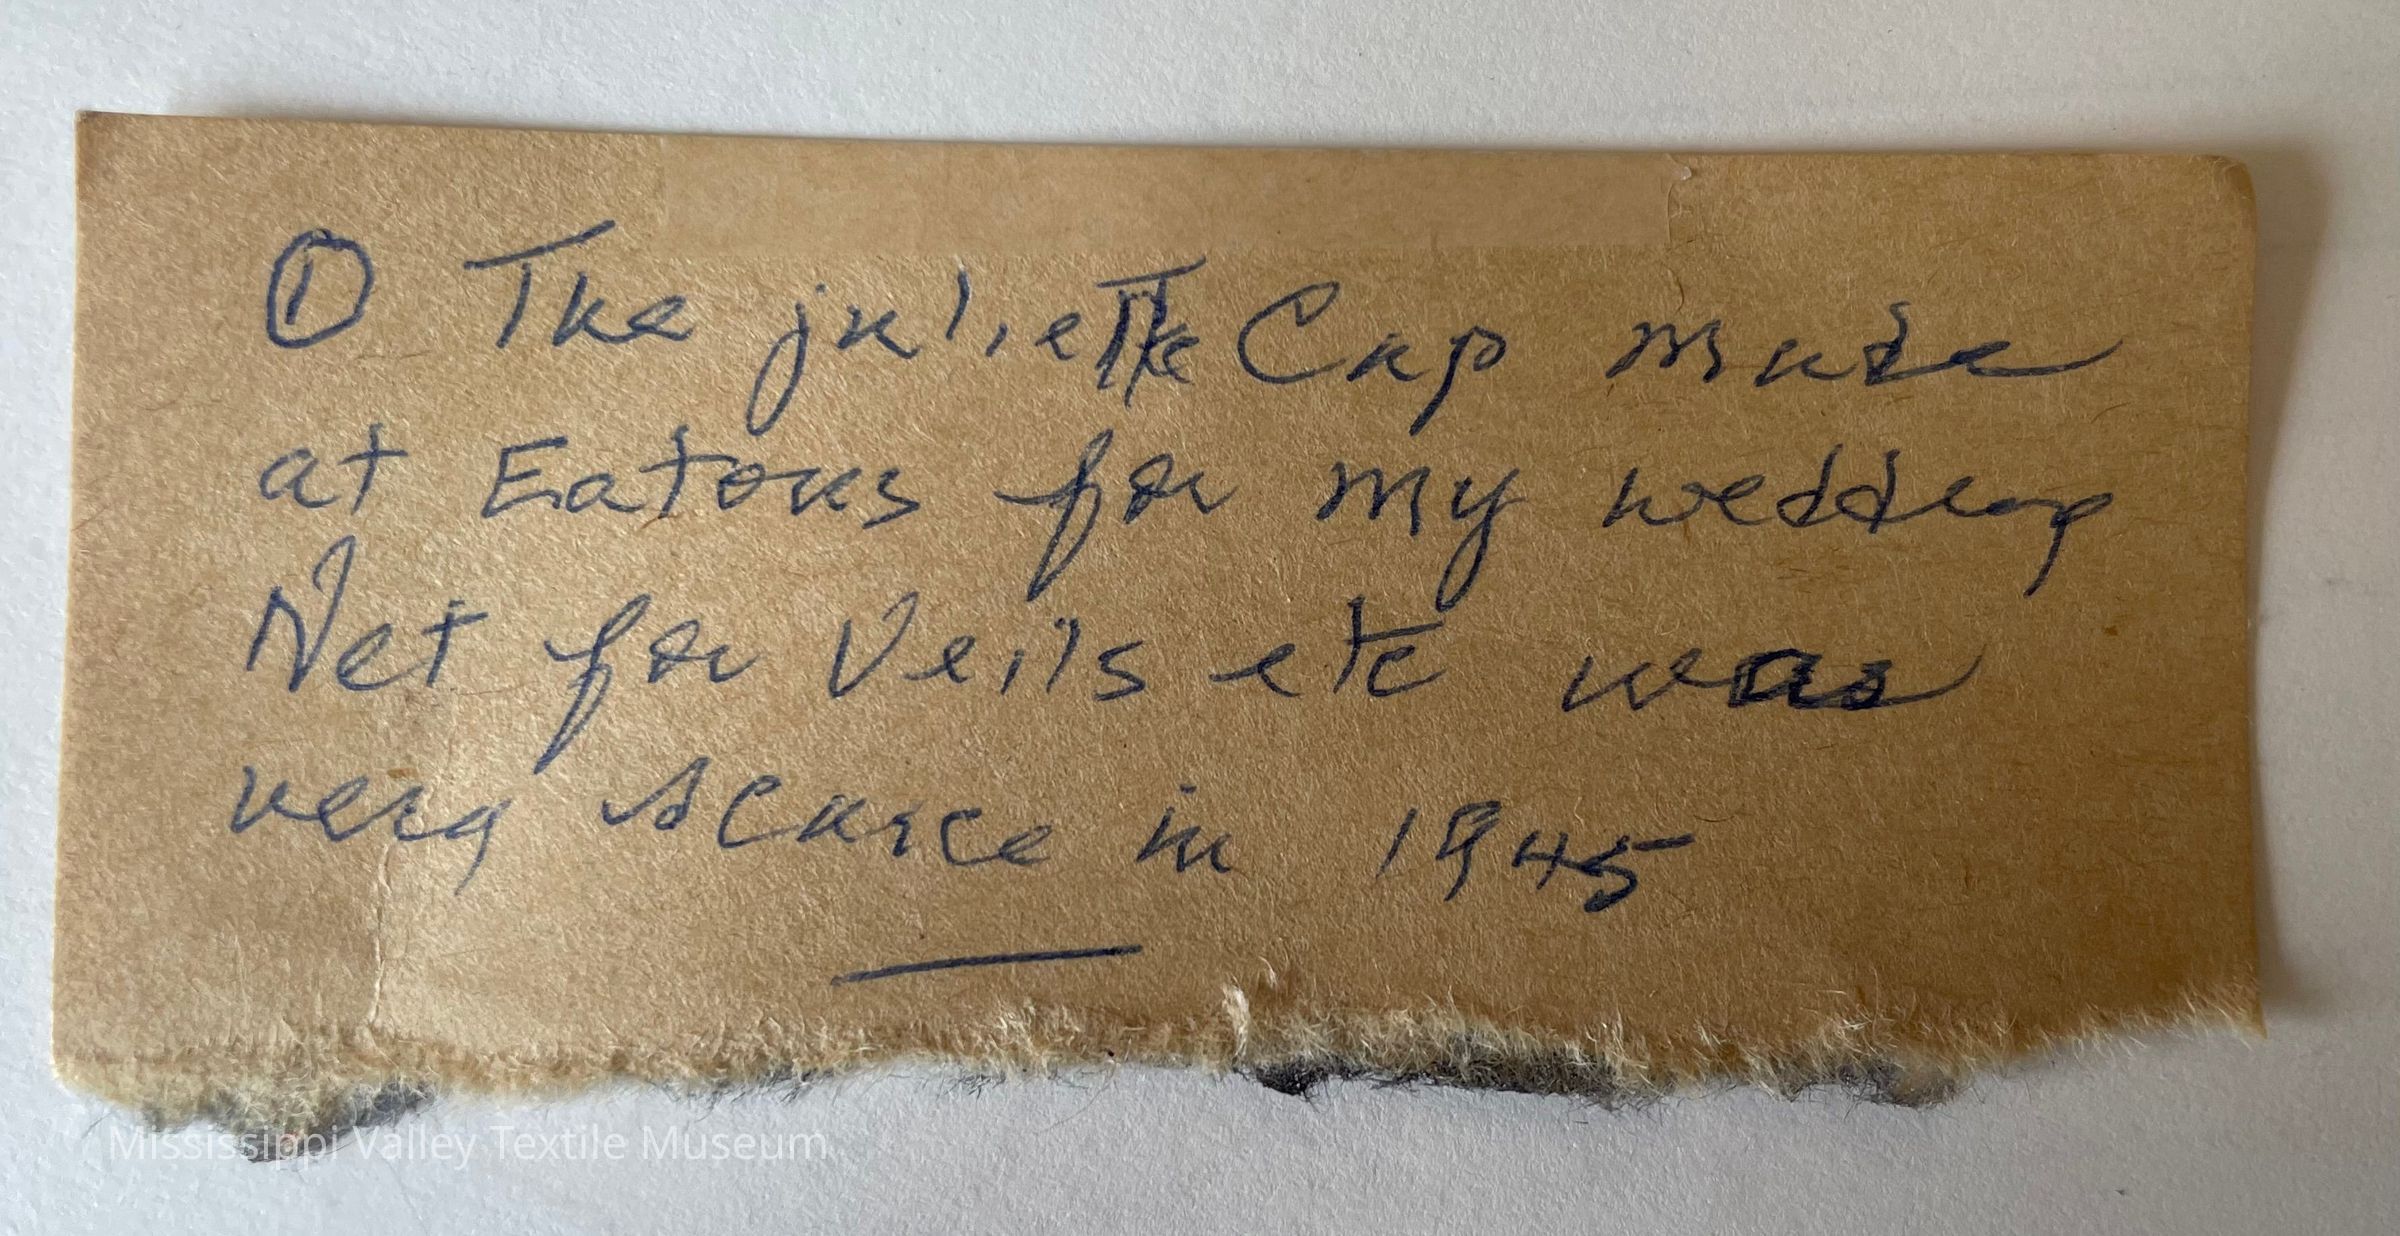 ① The juliette Cap made
at Eatons for my wedding
Net for Veils etc was
very scarce in 1945
Mississippi Valley Textile Museum